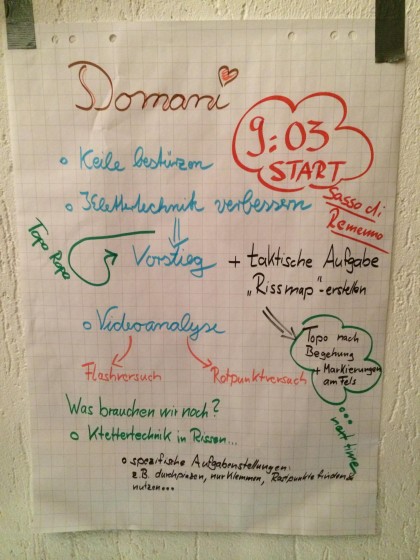 Domani
9:03
START
Sasso di
Remenno
o Keile bestürzen
o Klettertechnik verbessern
Topo Rope
Vorstieg + taktische Aufgabe
„Rissmap"-erstellen
o Videoanalyse
Topo nach
Begehung
+ Markierungen
am Fels
... next time
Flashversuch Rotpunktversuch
Was brauchen wir noch?
o Klettertechnik in Rissen...
o spezifische Aufgabenstellungen:
z.B. durchpiazen, nur Klemmen, Rastpunkte finden &
nutzen...